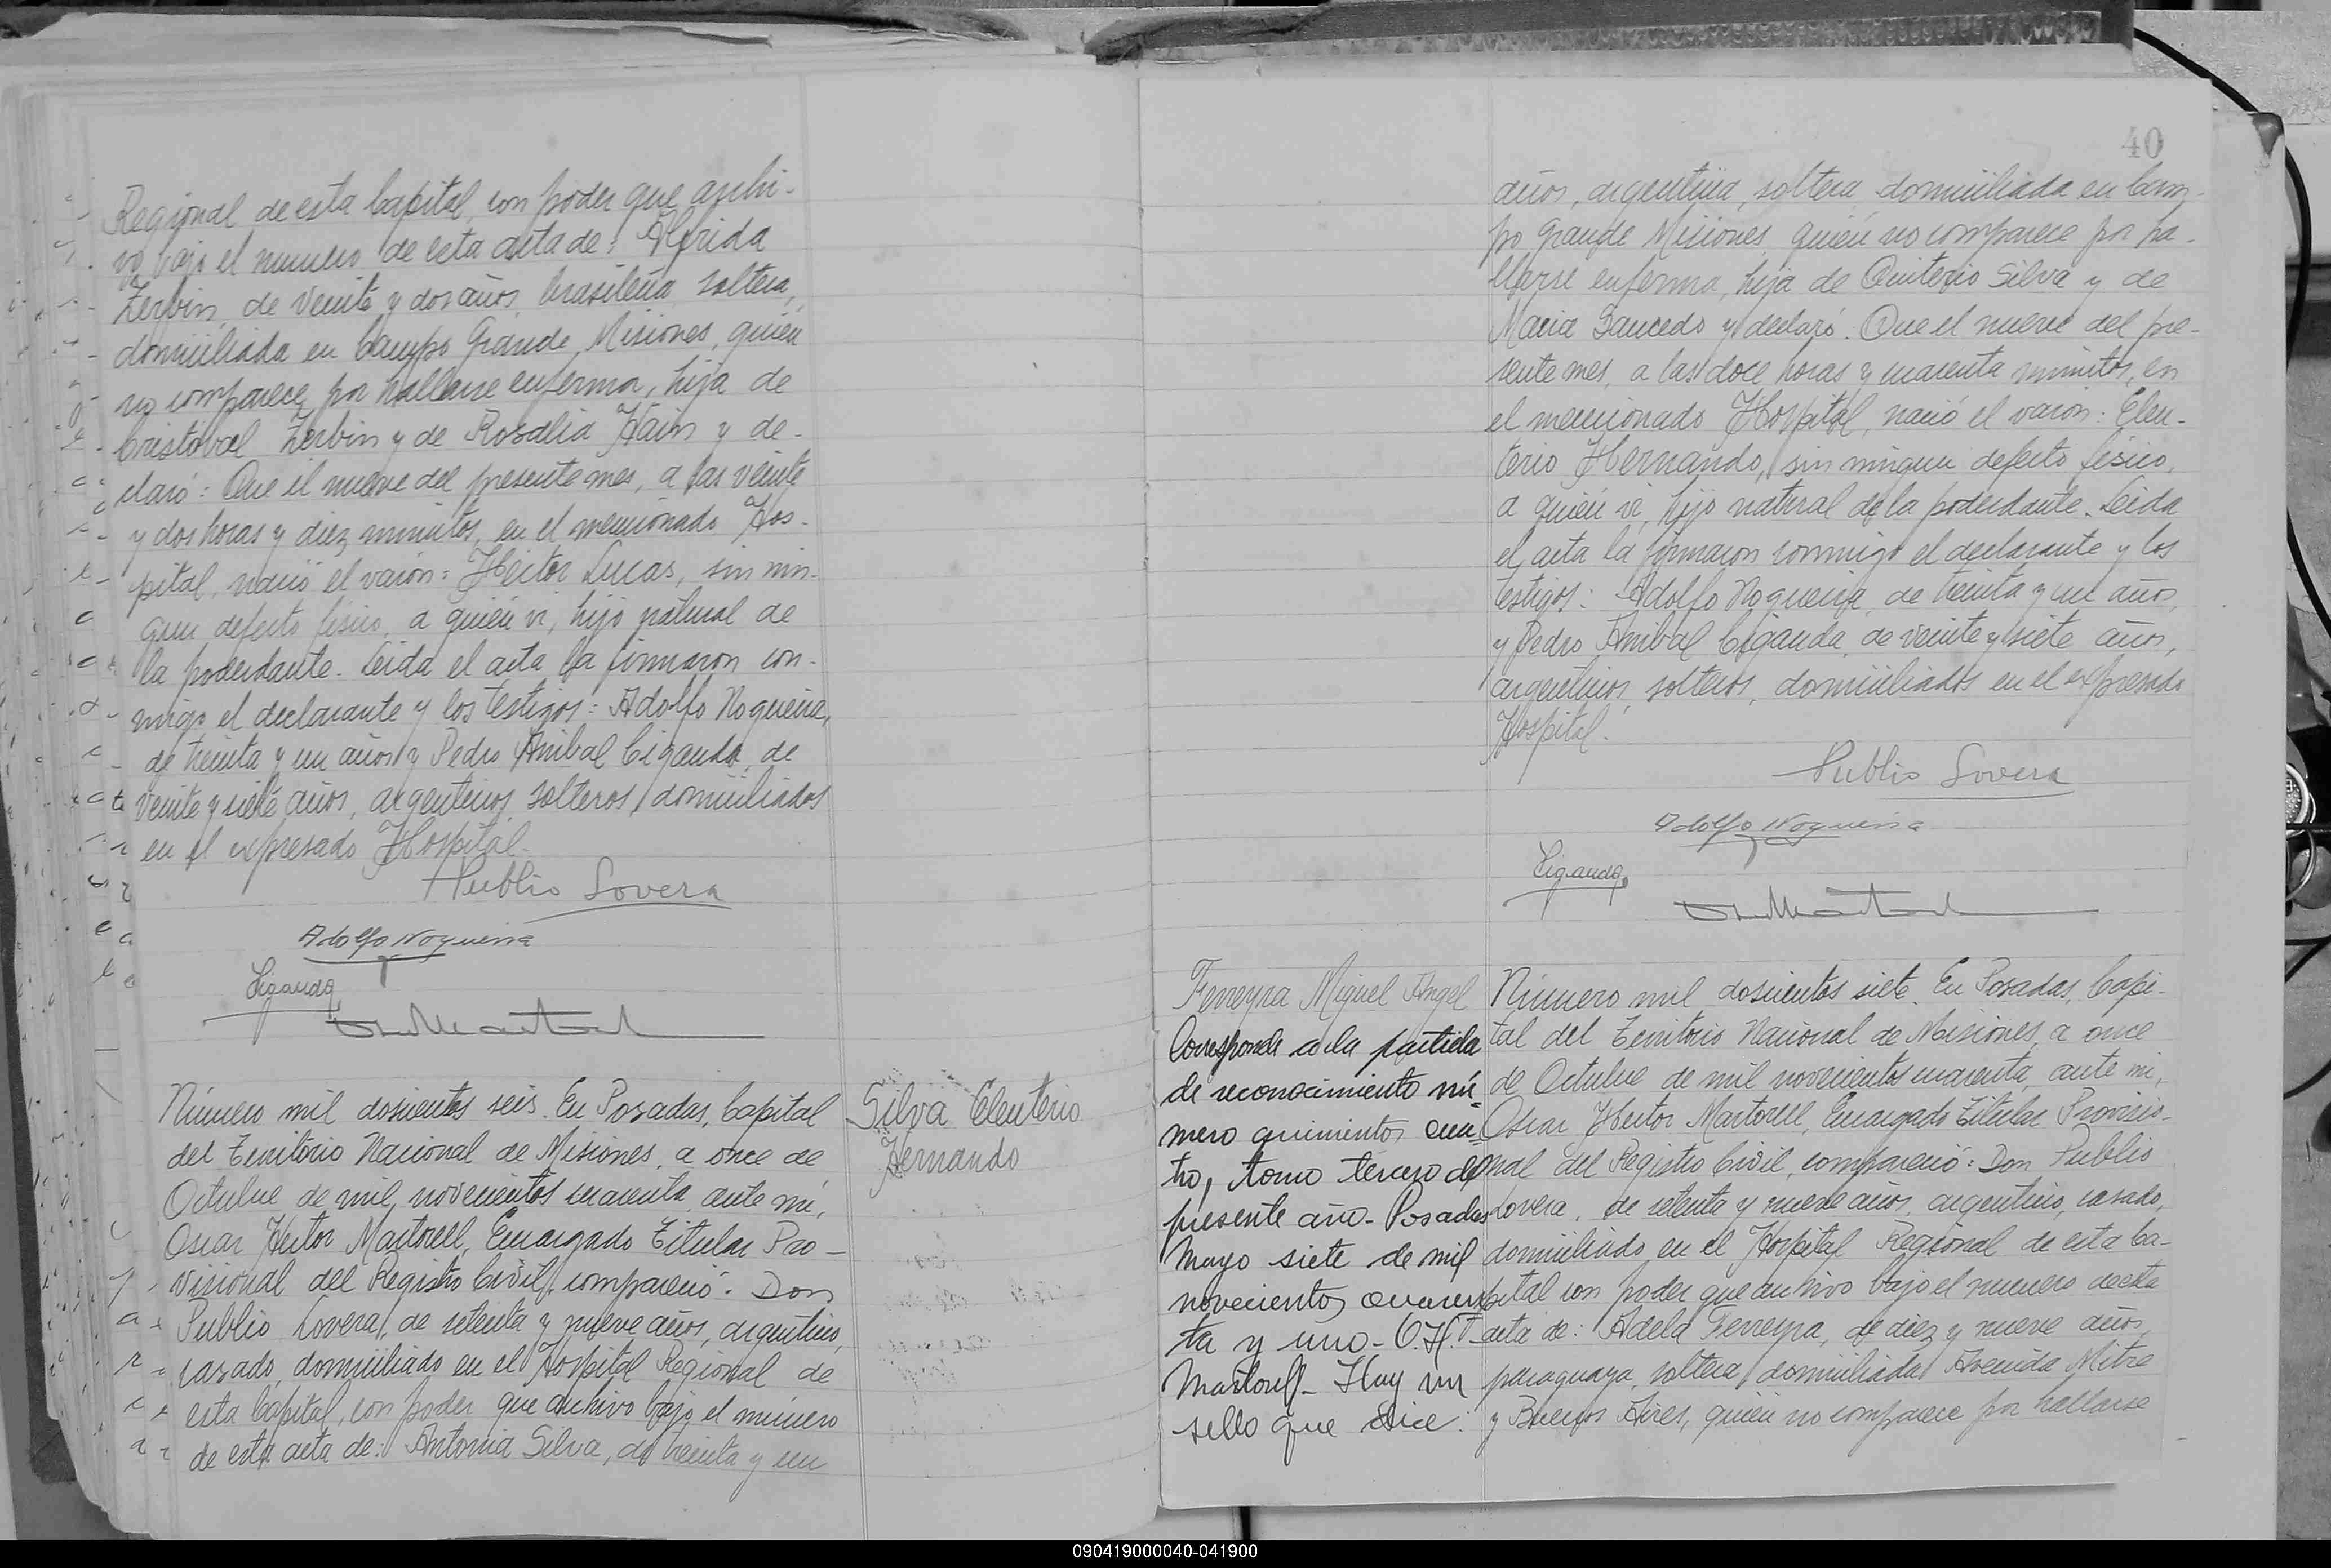 Regional de esta Capital, con poder que archi-
vo bajo el numero de esta acta de: Alfrida
Zerbin, de veinte y dos años, brasileña, soltera,
domiciliada en Campo Grande, Misiones, quién
no comparece por hallarse enferma, hija de
Cristóval Zerbin y de Rosalia Hain y de-
claró: Que el nueve del presente mes, a las veinte
y dos horas y diez minutos, en el mencionado Hos-
pital, nació el varón: Héctor Lucas, sin nin-
gun defecto físico, a quién vi, hijo natural de
la poderdante. Leida el acta la firmaron con-
migo el declarante y los testigos: Adolfo Nogueira,
de treinta y un años y Pedro Anibal Ciganda, de
veinte y siete años, argentinos, solteros, domiciliados
en el expresado Hospital.
Publio Lovera
Adolfo Nogueira
Ciganda
Número mil doscientos seis. En Posadas, Capital
del Territorio Nacional de Misiones, a once de
Octubre de mil novecientos cuarenta, ante mí,
Oscar Hector Martorell, Encargado Titular Pro-
visional del Registro Civil, compareció: Don
Publio Lovera, de setenta y nueve años, argentino,
casado, domiciliado en el Hospital Regional de
esta Capital, con poder que archivo bajo el número
de esta acta de: Antonia Silva, de treinta y un
Silva Eleuterio
Hernando
40
años, argentina, soltera, domiciliada en Cam-
po Grande Misiones, quién no comparece por ha-
llarse enferma, hija de Quiterio Silva y de
Maria Saucedo y declaró: Que el nueve del pre-
sente mes, a las doce horas y cuarenta minutos, en
el mencionado Hospital, nació el varón: Eleu-
terio Hernando, sin ningun defecto físico,
a quién vi, hijo natural de la poderdante. Leida
el acta la firmaron conmigo el declarante y los
testigos: Adolfo Nogueira, de treinta y un años,
y Pedro Anibal Ciganda, de veinte y siete años,
argentinos, solteros, domiciliados en el expresado
Hospital.
Publio Lovera
Adolfo Nogueira
Ciganda
Ferreyra Miguel Angel
Corresponde a la partida
de reconocimiento nú-
mero quinientos cua-
tro, tomo tercero del
presente año- Posadas
Mayo siete de mil
novecientos cuaren-
ta y uno- O.H.
Martorell- Hay un
sello que dice:
Número mil doscientos siete. En Posadas, Capi-
tal del Territorio Nacional de Misiones, a once
de Octubre de mil novecientos cuarenta, ante mi,
Oscar Hector Martorell, Encargado Titular Provisio-
nal del Registro Civil, compareció: Don Publio
Lovera, de setenta y nueve años, argentino, casado,
domiciliado en el Hospital Regional de esta Ca-
pital con poder que archivo bajo el numero de esta
acta de: Adela Ferreyra, de diez y nueve años,
paraguaya, soltera, domiciliada Avenida Mitre
y Buenos Aires, quién no comparece por hallarse
090419000040-041900